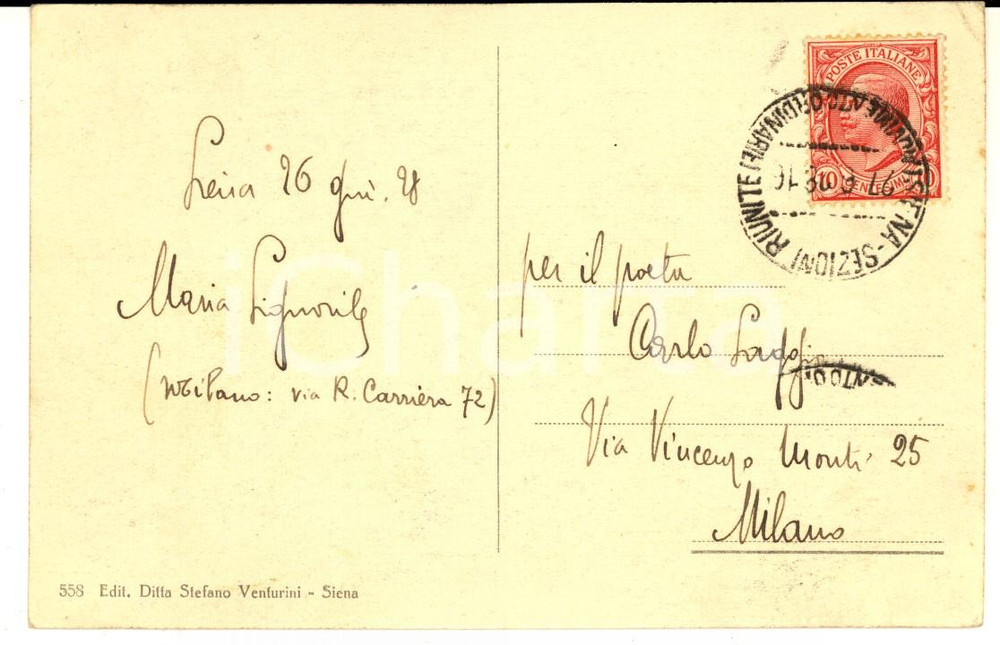 Siena 26 giu. 28
Maria Signorile
(Milano: via R. Carriera 72)
558 Edit. Ditta Stefano Venturini - Siena
POSTE ITALIANE
10 CENTESIMI 10
SIENA - SEZIONI RIUNITE
ORDINARIE
per il poeta
Carlo Saggi
Via Vincenzo Monti 25
Milano
iCharta